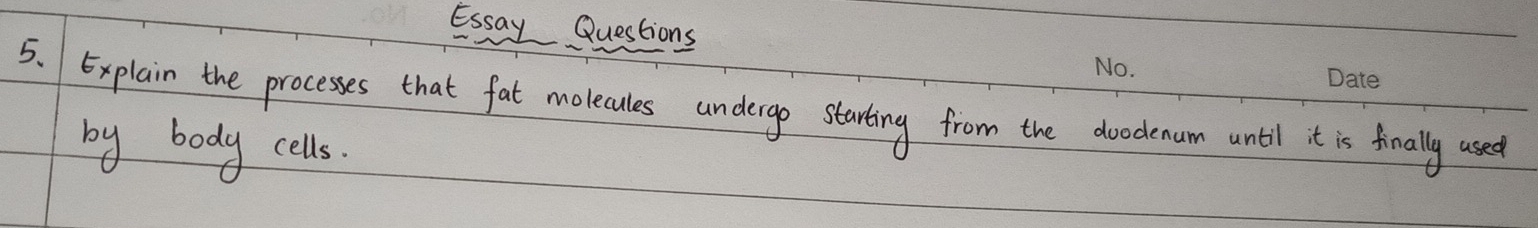 Essay Questions
No. Date
5. Explain the processes that fat molecules undergo starting from the duodenum until it is finally used
by body cells.